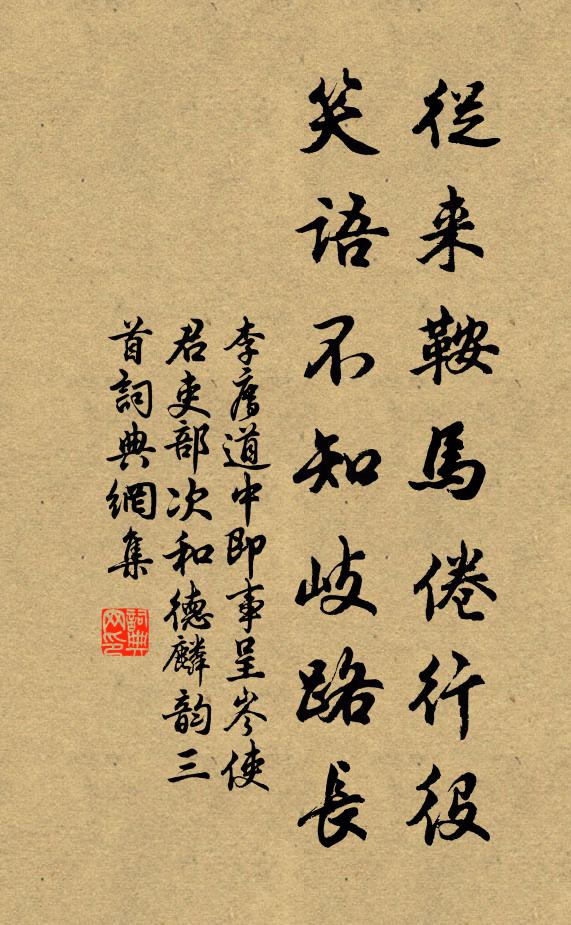 從来鞍馬倦行役
笑語不知岐路長
李廌道中即事呈岑使
君吏部次和德麟韵三
首詞典網集
詞典网印